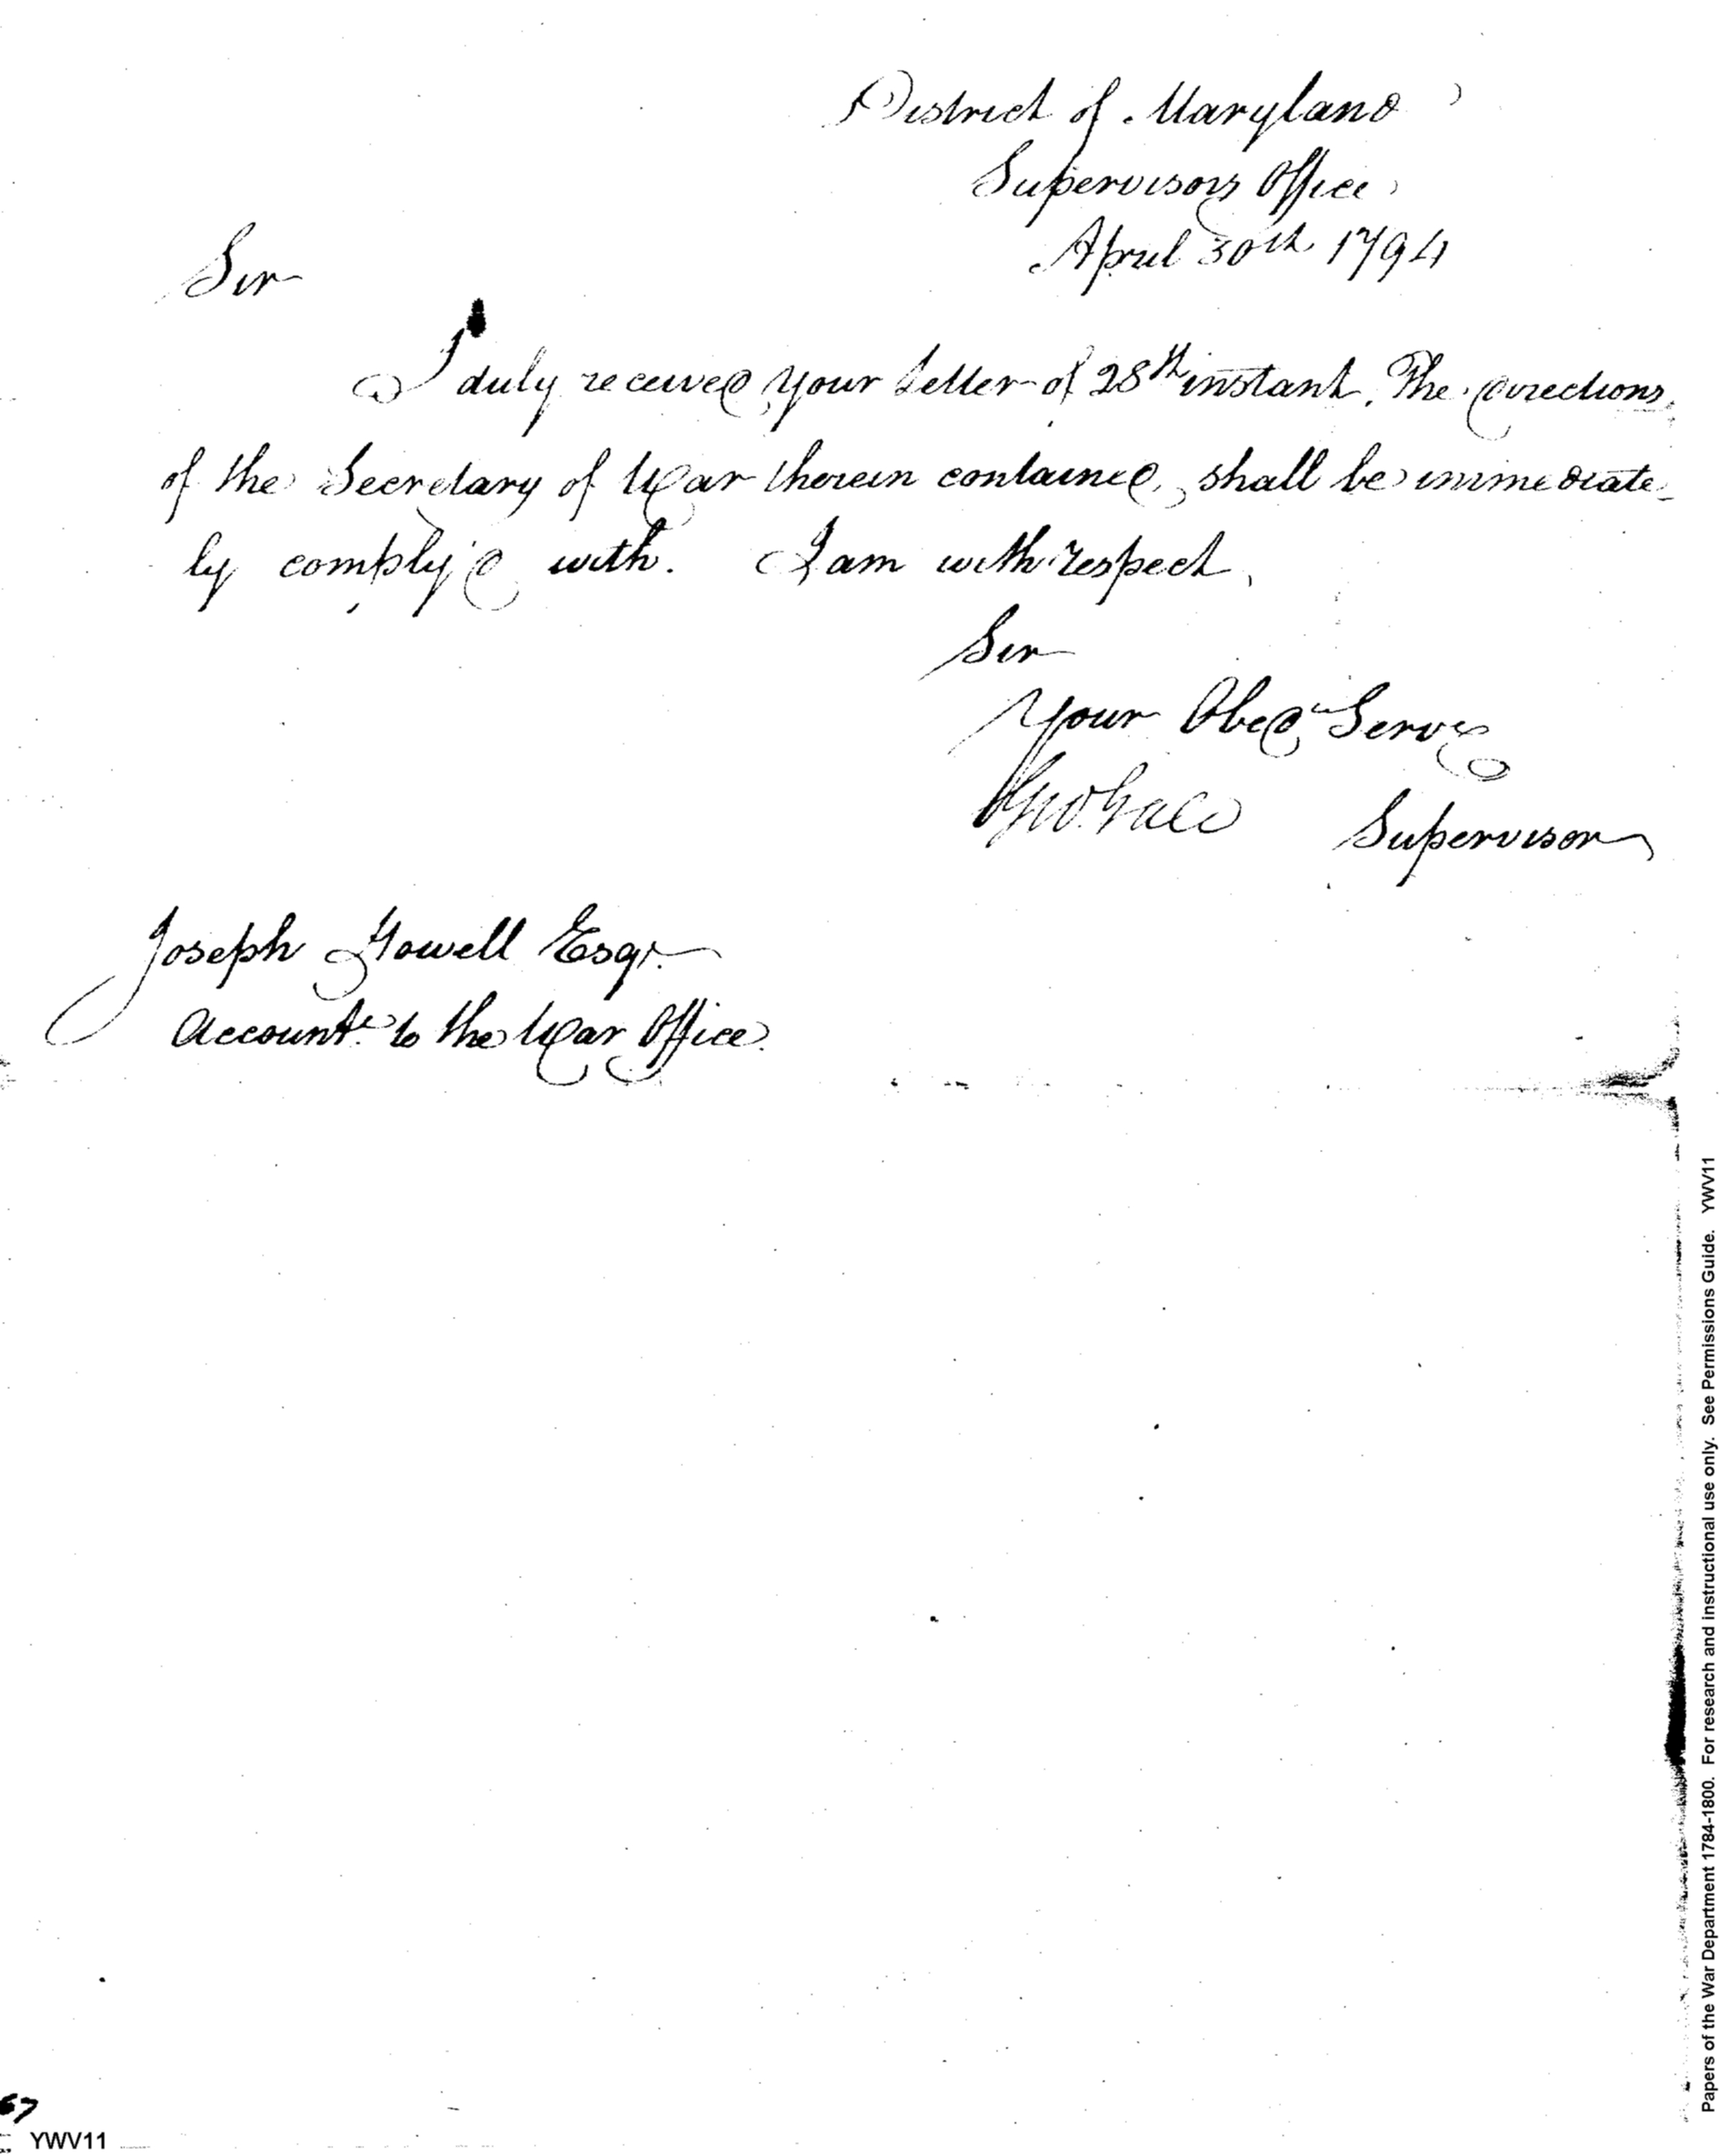 District of Maryland
Supervisors Office
April 30th 1794
Sir
I duly received your Letter of 28th instant. The directions
of the Secretary of War therein contained, shall be immediate-
ly comply'd with. I am with respect,
Sir
Your Obed Serv
Geo Gale Supervisor
Joseph Howell Esqr.
Accountt. to the War Office.
67
YWV11
Papers of the War Department 1784-1800. For research and instructional use only. See Permissions Guide. YWV11